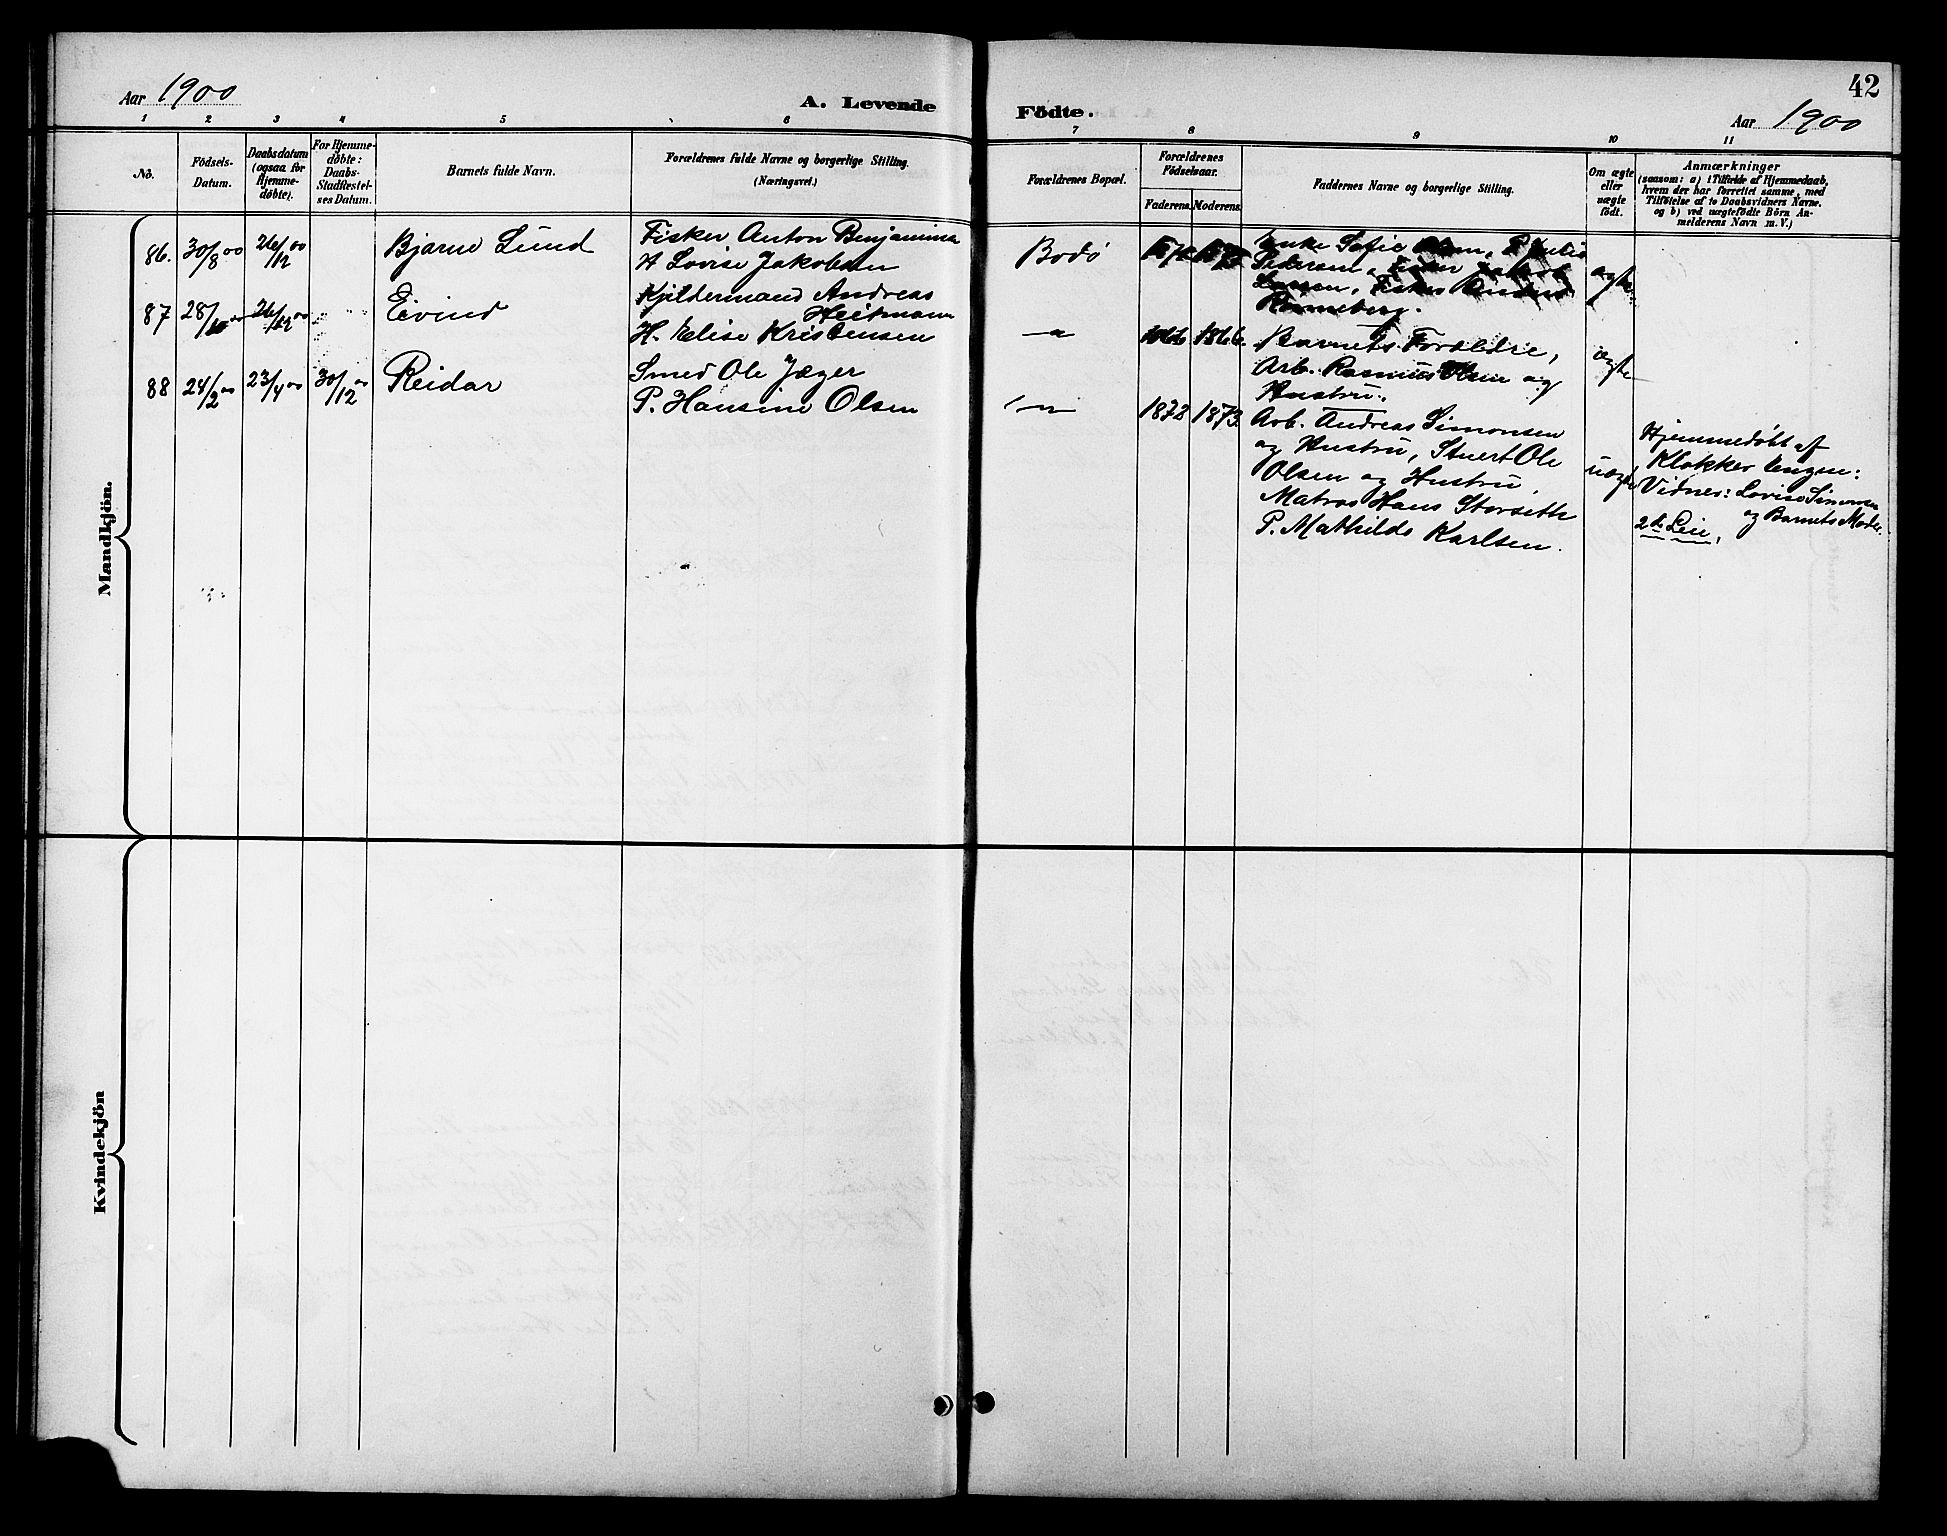 42
Aar 1900
A. Levende Födte.
Aar 1900
1 2 3 4 5 6 7 8 9 10 11
No.
Födsels-
Datum.
Daabsdatum
(ogsaa for
Hjemme-
døbte).
For Hjemme-
døbte:
Daabs-
Stadfæstel-
ses Datum.
Barnets fulde Navn.
Forældrenes fulde Navne og borgerlige Stilling.
(Næringsvei.)
Forældrenes Bopæl.
Forældrenes
Födselsaar.
Faderens. Moderens.
Faddernes Navne og borgerlige Stilling.
Om ægte
eller
uægte
födt.
Anmærkninger
(saasom: a) i Tilfælde af Hjemmedaab,
hvem der har forrettet samme, med
Tilföielse af to Daabsvidners Navne.
og b) ved uægtefödte Börn An-
melderens Navn m. V.)
Mandkjön.
86. 30/8 00 26/12 00 Bjarne Lund
Fisker Anton Benjamin
H Lovise Jakobsen
Bodø
Enke Sofie
Pedersen, Fisker
Larsen, Fisker
Ronneberg.
ægte
87 28/10 00 26/12 00 Eivind
Kjeldermand Andreas
Heitmann
H. Elise Kristensen
1866 1866.
Barnets Forældre,
Arb. Rasmus Olsen og
Hustru.
ægte
88 24/2 00 23/4 00 30/12 00 Reidar
Smed Ole Jæger
P. Hansine Olsen
1872 1873.
Arb. Andreas Simonsen
og Hustru, Stuert Ole
Olsen og Hustru,
Matros Hans Storseth
P. Mathilde Karlsen.
uægte
Hjemmedøbt af
Klokker Engen:
Vidner: Lovise Simonsen
og Barnets Moder.
2det Leie,
Kvindekjön